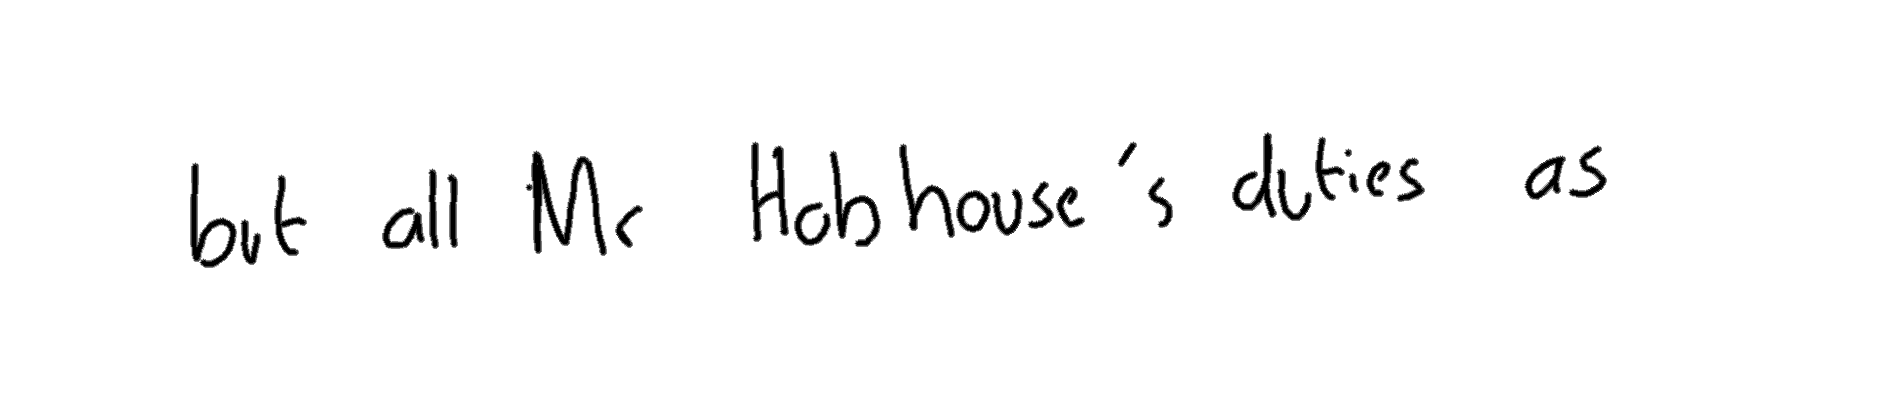 but all Mr Hobhouse's duties as